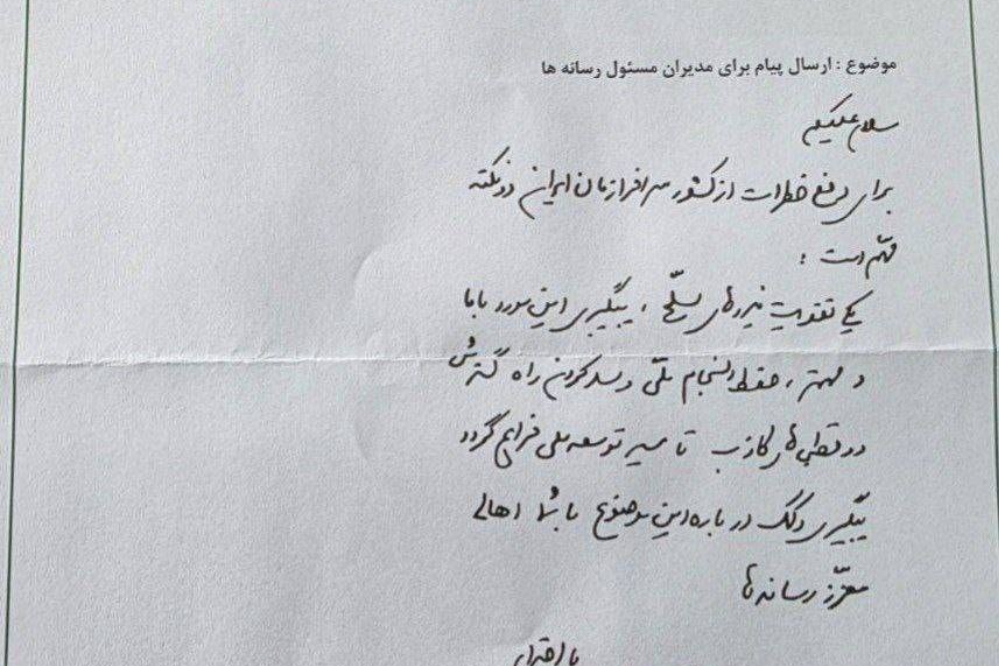 موضوع : ارسال پیام برای مدیران مسئول رسانه ها
سلام علیکم
برای رفع خطرات از کشور سرافرازمان ایران دو نکته
مهم است :
یکی تقویت نیروهای مسلّح ، پیگیری این مورد با ما
و مهمتر ، حفظ انسجام ملّی و سد کردن راه گسترش
دوقطبی‌های کاذب تا مسیر توسعه ملی فراخ گردد
پیگیری و کمک در باره این موضوع با شما اهالی
معزّز رسانه‌ها
با احترام